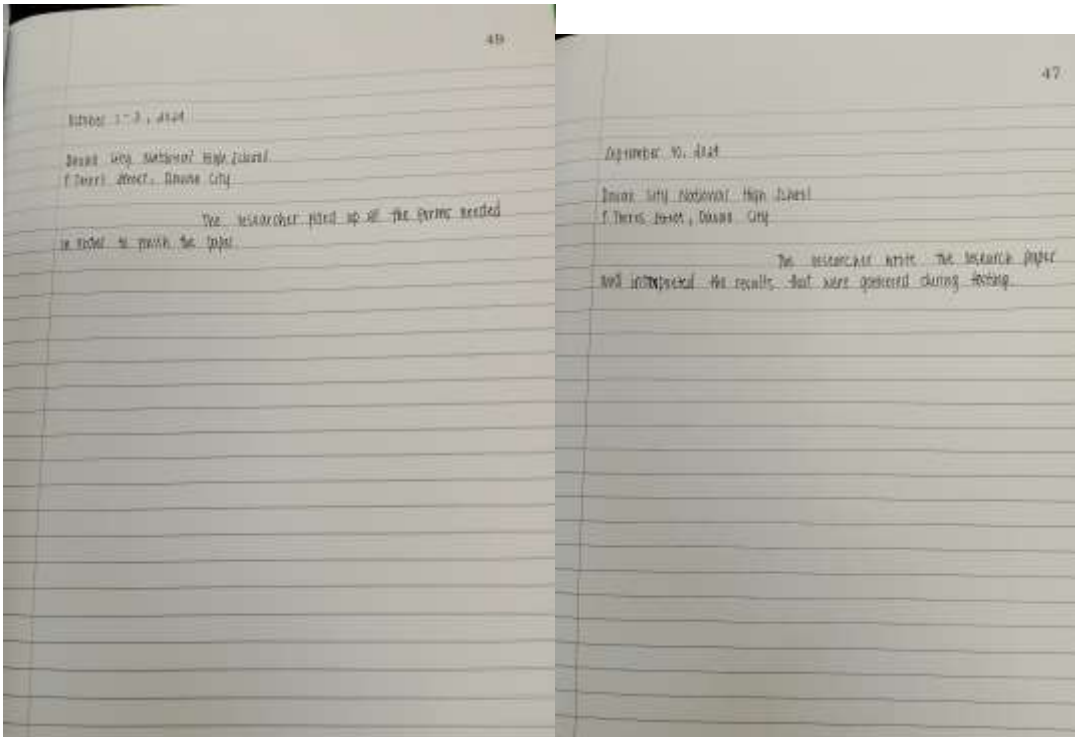 49
October 1-3, 2024
Davao City National High School
F. Torres Street, Davao City
The researcher filed up all the forms needed
in order to the paper
47
September 30, 2024
Davao City National High School
F. Torres Street, Davao City
The researcher write the research paper
and interpreted the results that were gathered during testing.